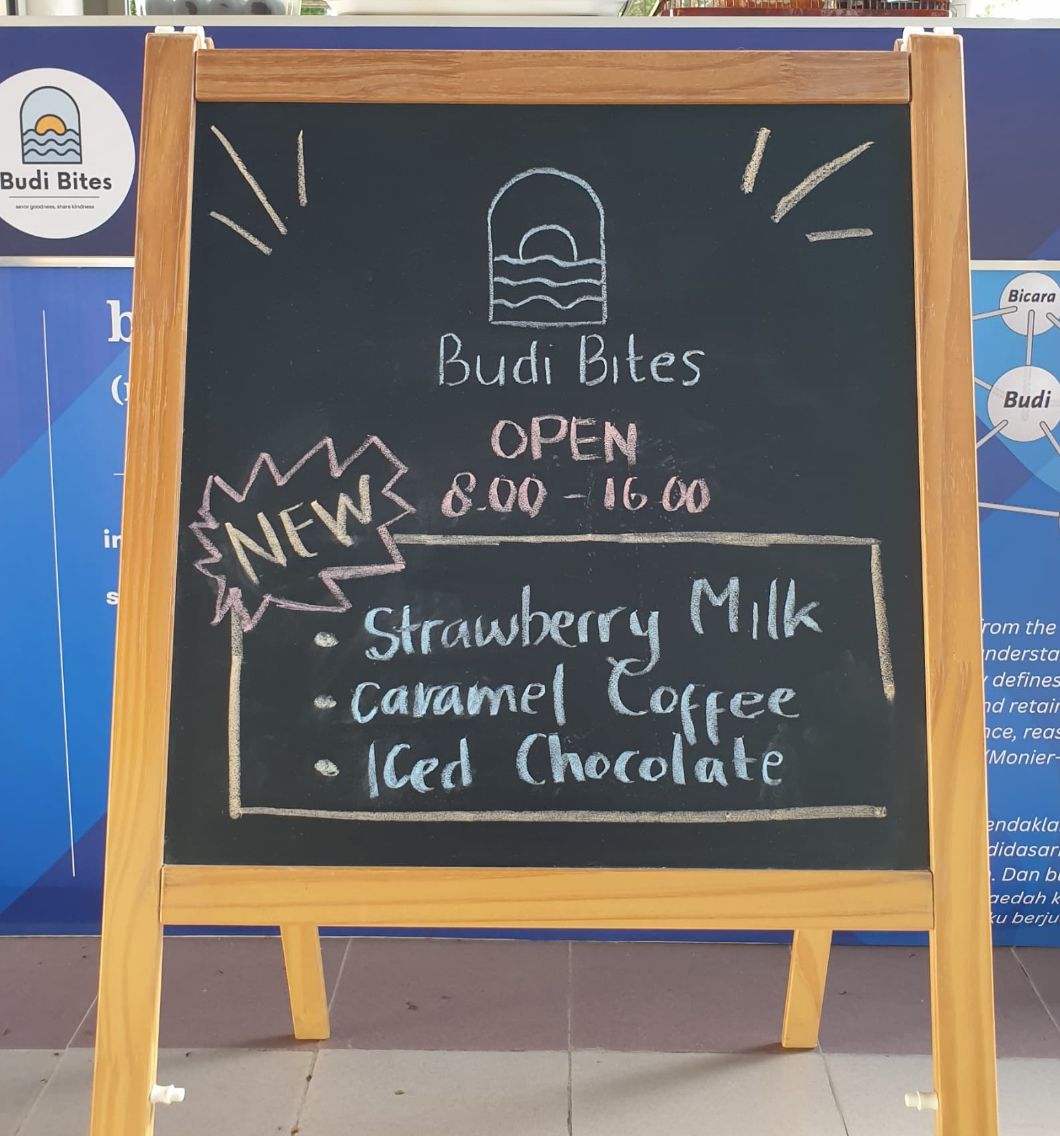 Budi Bites
savor goodness, share kindness
Budi Bites
OPEN
8.00 - 16 00
NEW
• Strawberry Milk
• Caramel Coffee
• Iced Chocolate
Bicara
Budi
from the
understa
y defines
nd retain
nce, reas
(Monier-
endakla
didasari
. Dan bu
aedah k
ku berju